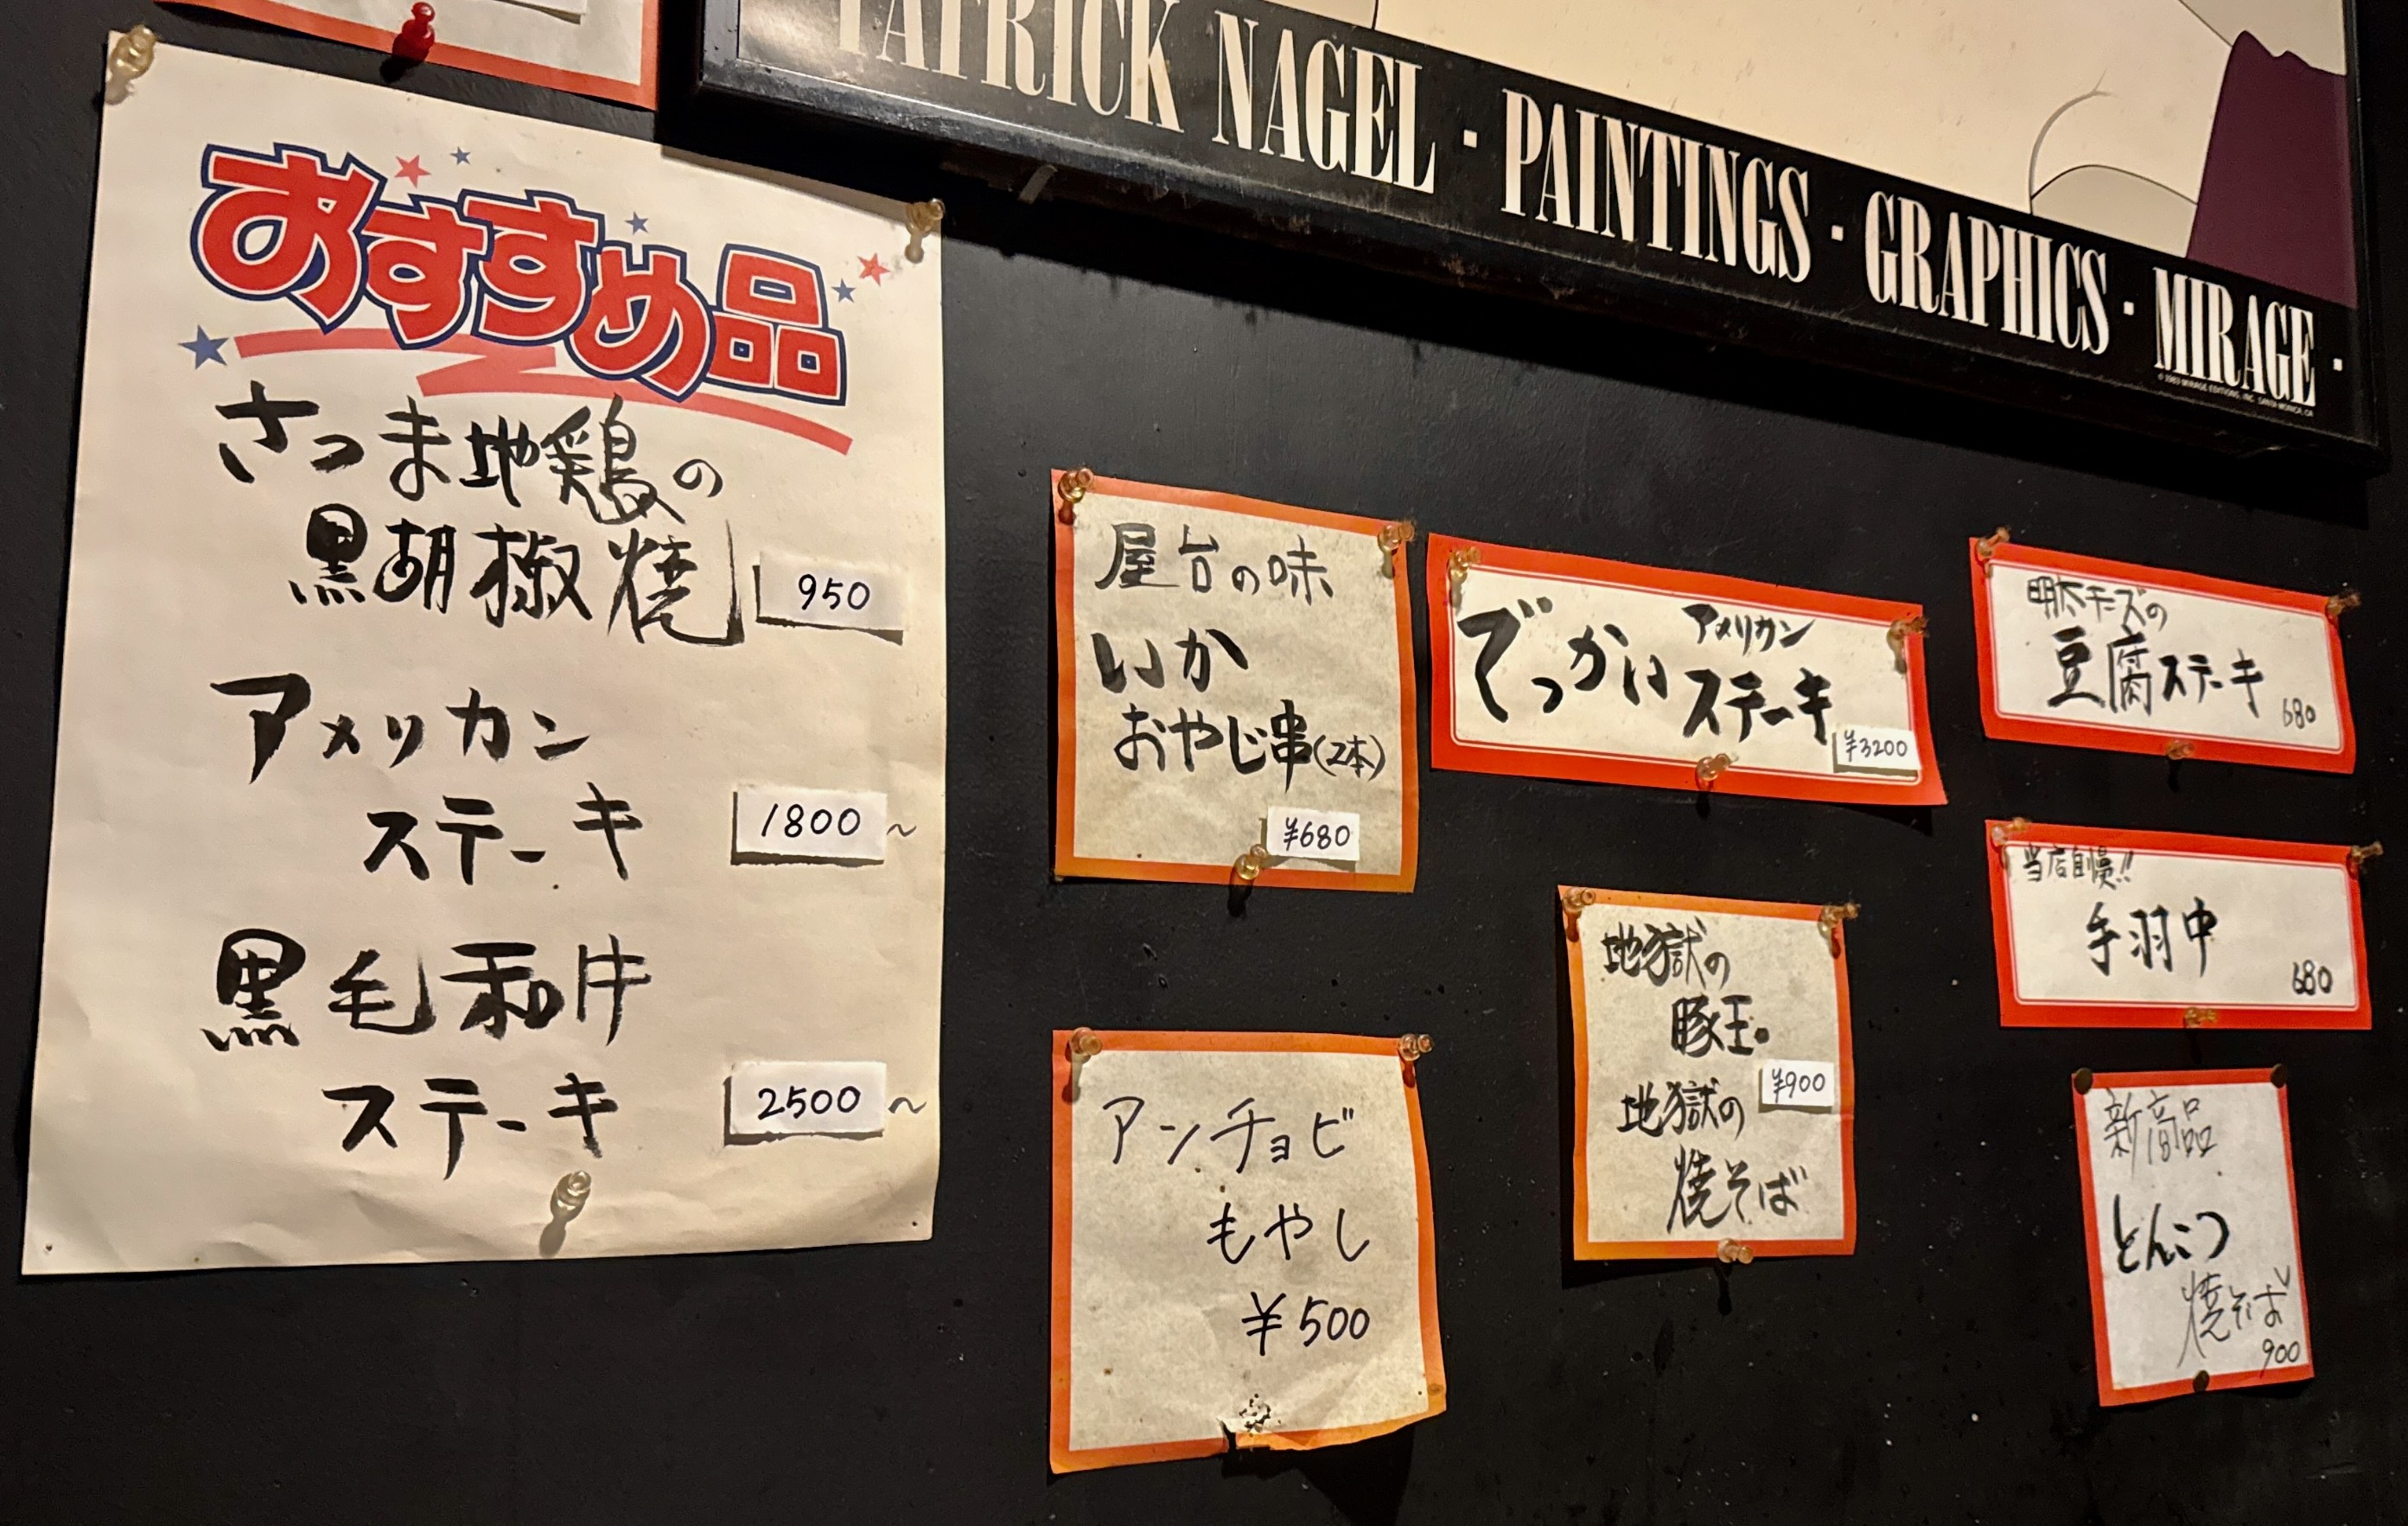 おすすめ品
さつま地鶏の
黒胡椒焼
950
アメリカン
ステーキ
1800~
黒毛和牛
ステーキ
2500~
PATRICK NAGEL · PAINTINGS · GRAPHICS · MIRAGE ·
屋台の味
いか
おやじ串(2本)
¥680
アンチョビ
もやし
¥500
でっかい
アメリカン
ステーキ
¥3200
地獄の
豚玉。
¥900
地獄の
焼そば
明太チーズの
豆腐ステーキ
680
当店自慢!!
手羽中
680
新商品
とんこつ
焼そば
900